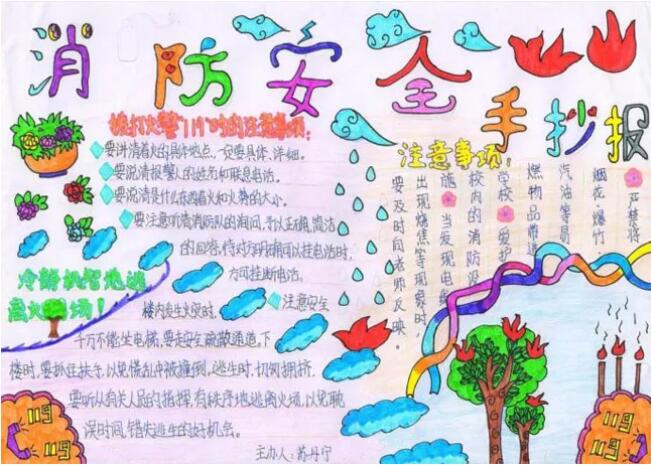 消防安全手抄报
拨打火警"119"时的注意事项:
要讲清着火的具体地点,一定要具体、详细。
要说清报警人的姓名和联系电话。
要说清是什么东西着火和火势的大小。
要注意听清消防队的询问,予以正确,简洁
的回答,待对方明确可以挂电话时,
方可挂断电话。
冷静机智地逃
离火场!
注意安全
楼内发生火灾时,
千万不能坐电梯,要走安全疏散通道。下
楼时,要抓住扶手,以免慌乱中被撞倒,逃生时,切勿拥挤,
要听从有关人员的指挥,有秩序地逃离火场,以免耽
误时间,错失逃生的好机会。
主办人:苏丹宁
注意事项:
严禁将
烟花、爆竹
汽油等易
燃物品带进
学校
爱护
校内的消防设
施
当发现电器
出现烧焦等现象时,
要及时向老师反映。
119
119
119
119